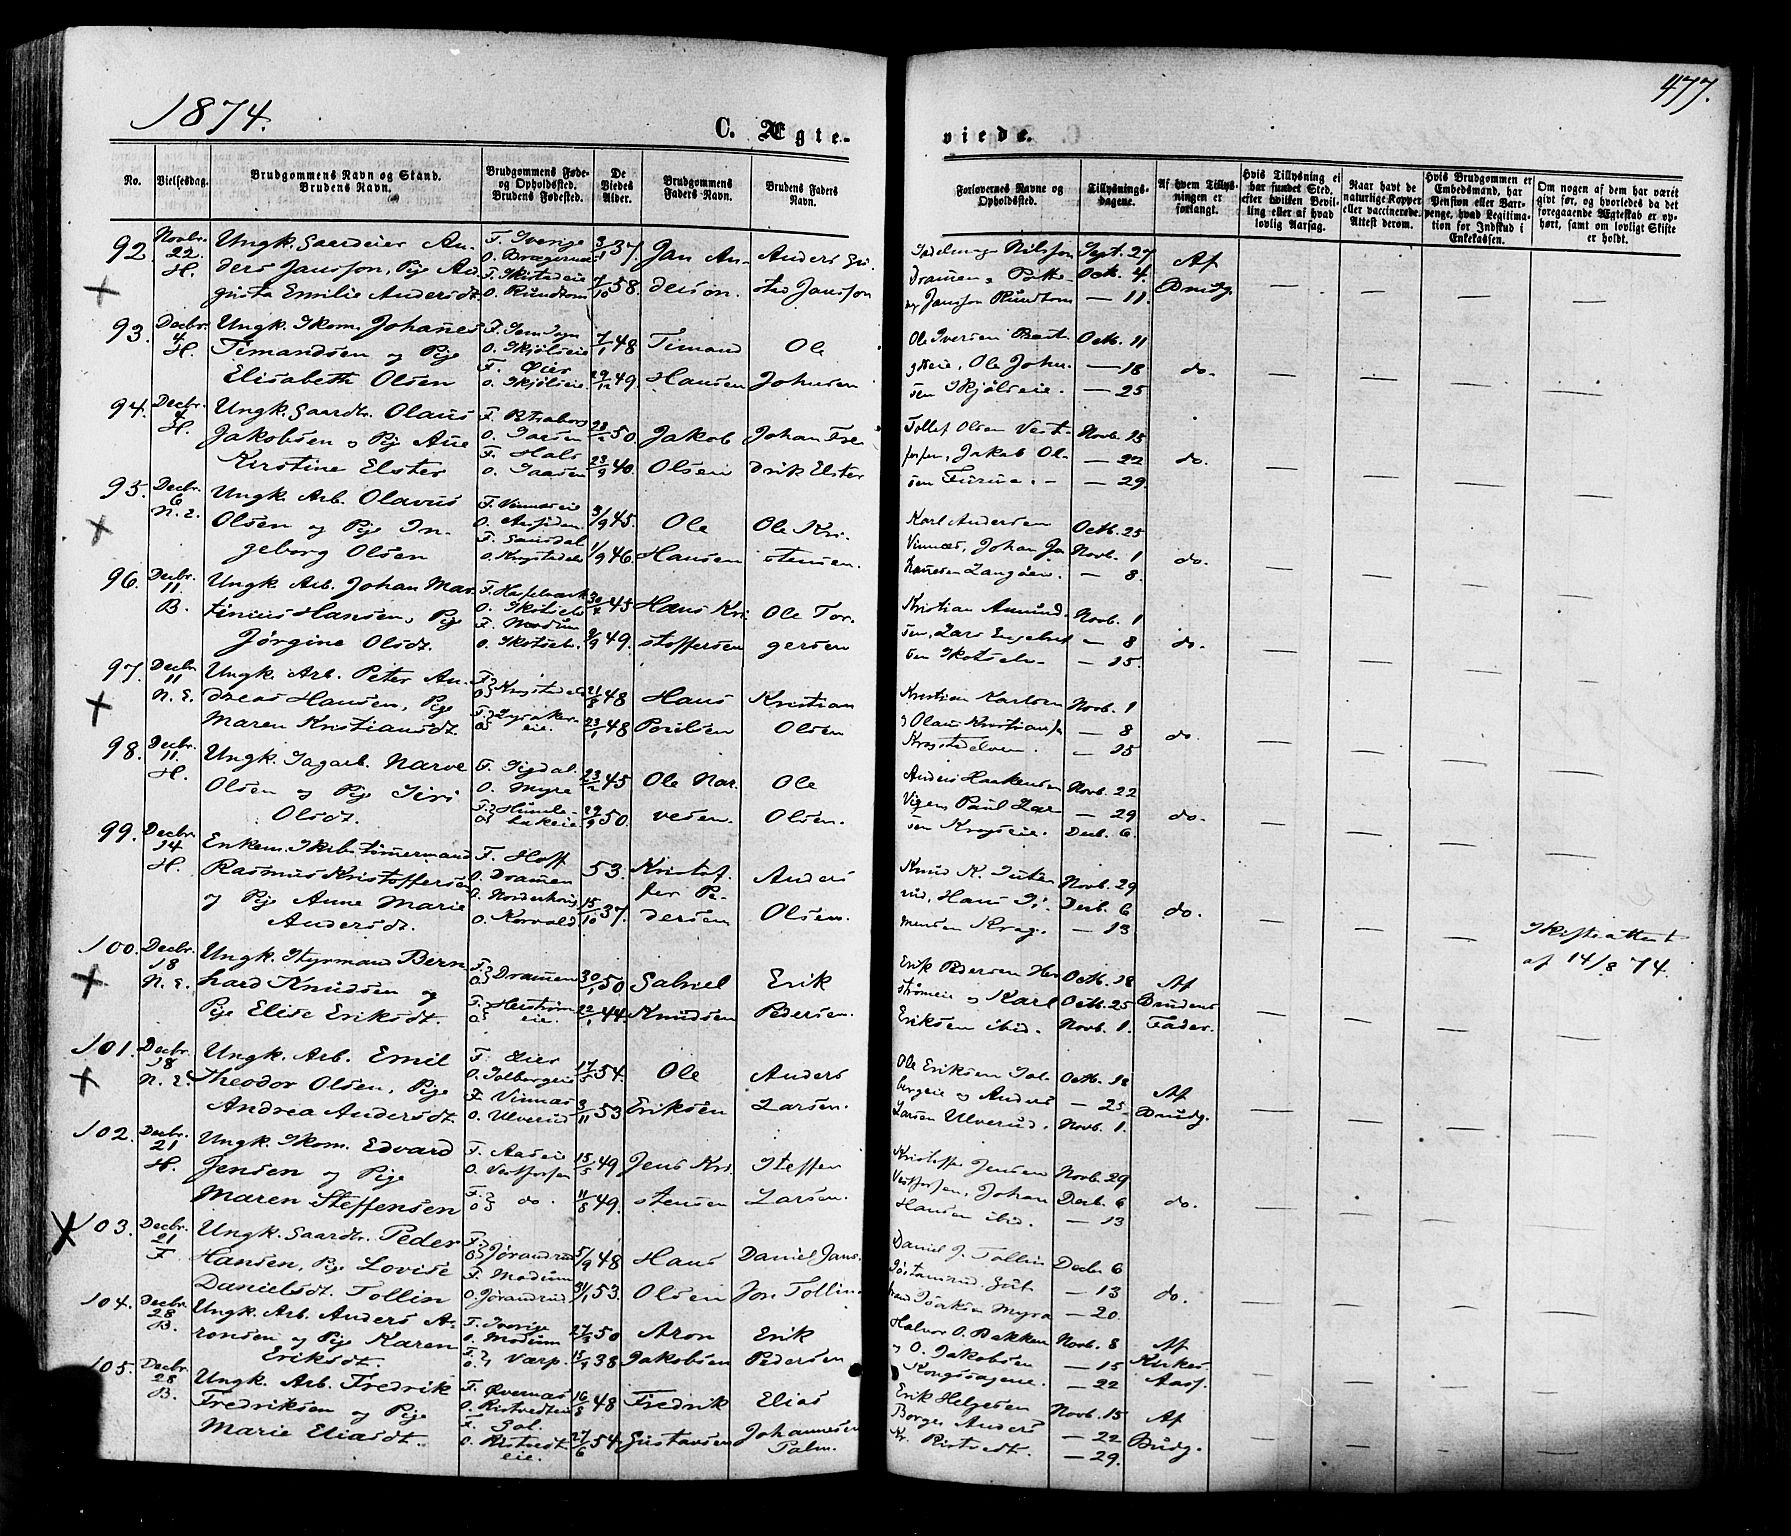 1874.
477.
C. Ægte-
viede.
No.
Vielsesdag.
Brudgommens Navn og Stand.
Brudens Navn.
Brudgommens Føde-
og Opholdssted.
Brudens Fødested.
De
Viedes
Alder.
Brudgommens
Faders Navn.
Brudens Faders
Navn.
Forlovernes Navne og
Opholdssted.
Tillysnings-
dagene.
Af hvem Tillys-
ningen er
forlangt.
Hvis Tillysning ei
har fundet Sted,
efter hvilken Bevil-
ling eller af hvad
lovlig Aarsag.
Naar havt de
naturlige Kopper
eller vaccinerede.
Attest derom.
Hvis Brudgommen er
Embedsmand, har
Pension eller Vart-
penge, hvad Legitima-
tion for Indskud i
Enkekassen.
Om nogen af dem har været
gift før, og hvorledes da det
foregaaende Ægteskab er op-
hørt, samt om lovligt Skifte
er holdt.
92. Novbr. 22. H.
Ungk. Gaardeier An-
ders Jansson, Pige Au-
gusta Emilie Andersdt.
F. Sverige
O. Rundtom
37. 7/10 58.
Jan An-
derson.
Anders
Jansson
Nilsson Sept. 27
Dramen Octb. 4.
Jansson Rundtom — 11.
Af
Brudg.
93. Decbr. 4. H.
Ungk. Skom. Johanes
Timandsen og Pige
Elisabeth Olsen
O. Skjølseie
F. Øier
O. Skjølseie
7/1 48
29/12 49.
Timand
Hansen
Ole
Johnsen
Ole Iversen Octb. 11
Ole John- — 18
sen Skjølseie. — 25
do.
94. Decbr. 4. H.
Ungk. Gaardbr. Olaus
Jakobsen og Pige Ane
Kirstine Elster
F. Hals
50. 23/9 40.
Jakob
Olsen
Johan Fre
drik Elster
Tollef Olsen Vest- Novb. 15
fossen, Jakob Ol- — 22
sen Furua. — 29.
do.
95. Decbr. 6 N. E.
Ungk. Arb. Olavus
Olsen og Pige In-
geborg Olsen
O. Krogstadelv
3/9 45.
1/9 46.
Ole
Hansen
Ole Kri-
stensen.
Karl Andersen Octb. 25
Vinnæs, Johan Jo- Novb. 1
hannesen Langøen. — 8.
do.
96. Decbr. 11 B.
Ungk. Arb. Johan Mar-
tinius Hansen, Pige
Jørgine Olsdt.
O. Skotselv
F. Modum
O. Skotselv.
45
49.
Hans Kri-
stoffersen
Ole Tor-
gersen
Kristian Amund- Novb. 1
sen, Lars Engebret — 8
sen Skotselv. — 15.
do.
97. Decbr. 11 N. E.
Ungk. Arb. Peter An-
dreas Hansen, Pige
Maren Kristiansdt.
Krogstadelv
48
23/1 48
Hans
Poulsen
Kristian
Olsen
Kristian Karlsen Novb. 1
Olaus Kristiansen — 8
Krogstadelven. — 15
do.
98. Decbr. 11. H.
Ungk. Dagarb. Narve
Olsen og Pige Siri
Olsdt.
F. Sigdal
O. Myre
23/12 45
29/9 50.
Ole Nar-
vesen.
Ole
Olsen.
Anders Haakensen Novb. 22
Vigen, Paul Lar — 29
sen Krogseie. Decb. 6.
do.
99. Decbr. 14 H.
Enkem. Skibstømmermand
Rasmus Kristoffersen
og Pige Anne Marie
Andersdt.
F. Hoff
O. Dramen
O. Korvald
53.
15/10 37.
Kristof-
fer Pe-
dersen
Anders
Olsen.
Knud K. Novb. 29
Hans Si- Decb. 6
mensen Krog. — 13
do.
Skifteattest
af 14/8 74.
100. Decbr. 18 N. E.
Ungk. Styrmand Bern-
hard Knudsen og
Pige Elise Eriksdt.
F. O. Dramen
F. O. Herstrøm-
eie.
30/1 50
22/1 44.
Gabriel
Knudsen
Erik
Pedersen.
Erik Pedersen Her Octb. 18
strømeie og Karl Octb. 25
Eriksen ibid. Novb. 1.
Af
Brudens
Fader.
101. Decbr. 18 N. E.
Ungk. Arb. Emil
Theodor Olsen, Pige
Andrea Andersdt.
F. Øier
O. Solbergeie
F. Vinnæs
O. Ulverud
17/5 54.
3/11 53
Ole
Eriksen
Anders
Larsen.
Ole Eriksen Sol- Octb. 18
bergeie og Anders — 25
Larsen Ulverud. Novb. 1.
Af
Brudg.
102. Decbr. 21 H.
Ungk. Skom. Edvard
Jensen og Pige
Maren Steffensen
F. Aaseie
O. Vestfossen
F. O. do.
15/5 49
11/8 49.
Jens Kri-
stensen
Steffen
Larsen.
Kristoffer Jensen Novb. 29
Vestfossen, Johan Decb. 6
Hansen ibid. — 13
do.
103. Decbr. 21 F.
Ungk. Gaardbr. Peder
Hansen, Pige Lovise
Danielsdt. Tollin
F. O. Jørandrud
F. Modum
O. Jørandrud
5/9 48
31/1 53.
Hans
Olsen
Daniel Jans-
son Tollin
Daniel J. Tollin Decbr 6
— 13
Isaksen Myra — 20.
do.
104. Decbr. 28 B.
Ungk. Arb. Anders A-
ronsen og Pige Karen
Eriksdt.
F. Sverige
O. Modum
F. O. Varp.
27/3 50
38
Aron
Jakobsen
Erik
Pedersen
Halvor O. Bakken Novb. 8
og O. Jakobsen — 15
Kongssageie. — 22
Af
Kirkes
Aass.
105. Decbr. 28 B.
Ungk. Arb. Fredrik
Fredriksen og Pige
Marie Eliasdt.
F. Øvernæs
O. Ristvedteie
O. Ristvedt
eie.
16/8 48
27/6 54.
Fredrik
Gustavsen
Elias
Johannesen
Palm.
Erik Helgesen Novb. 15
Borger Anders — 22
Kr. Ristvedt. — 29.
Af
Brudg.